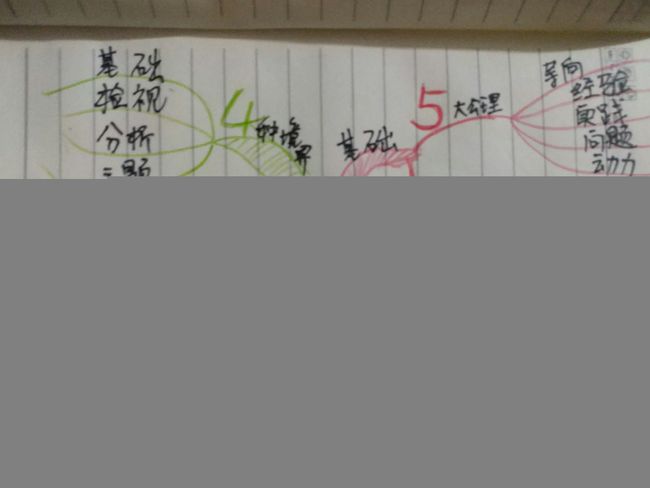 基础
检视
分析
4 种境界
基础
5 大公理
导向
经验
实践
问题
动力